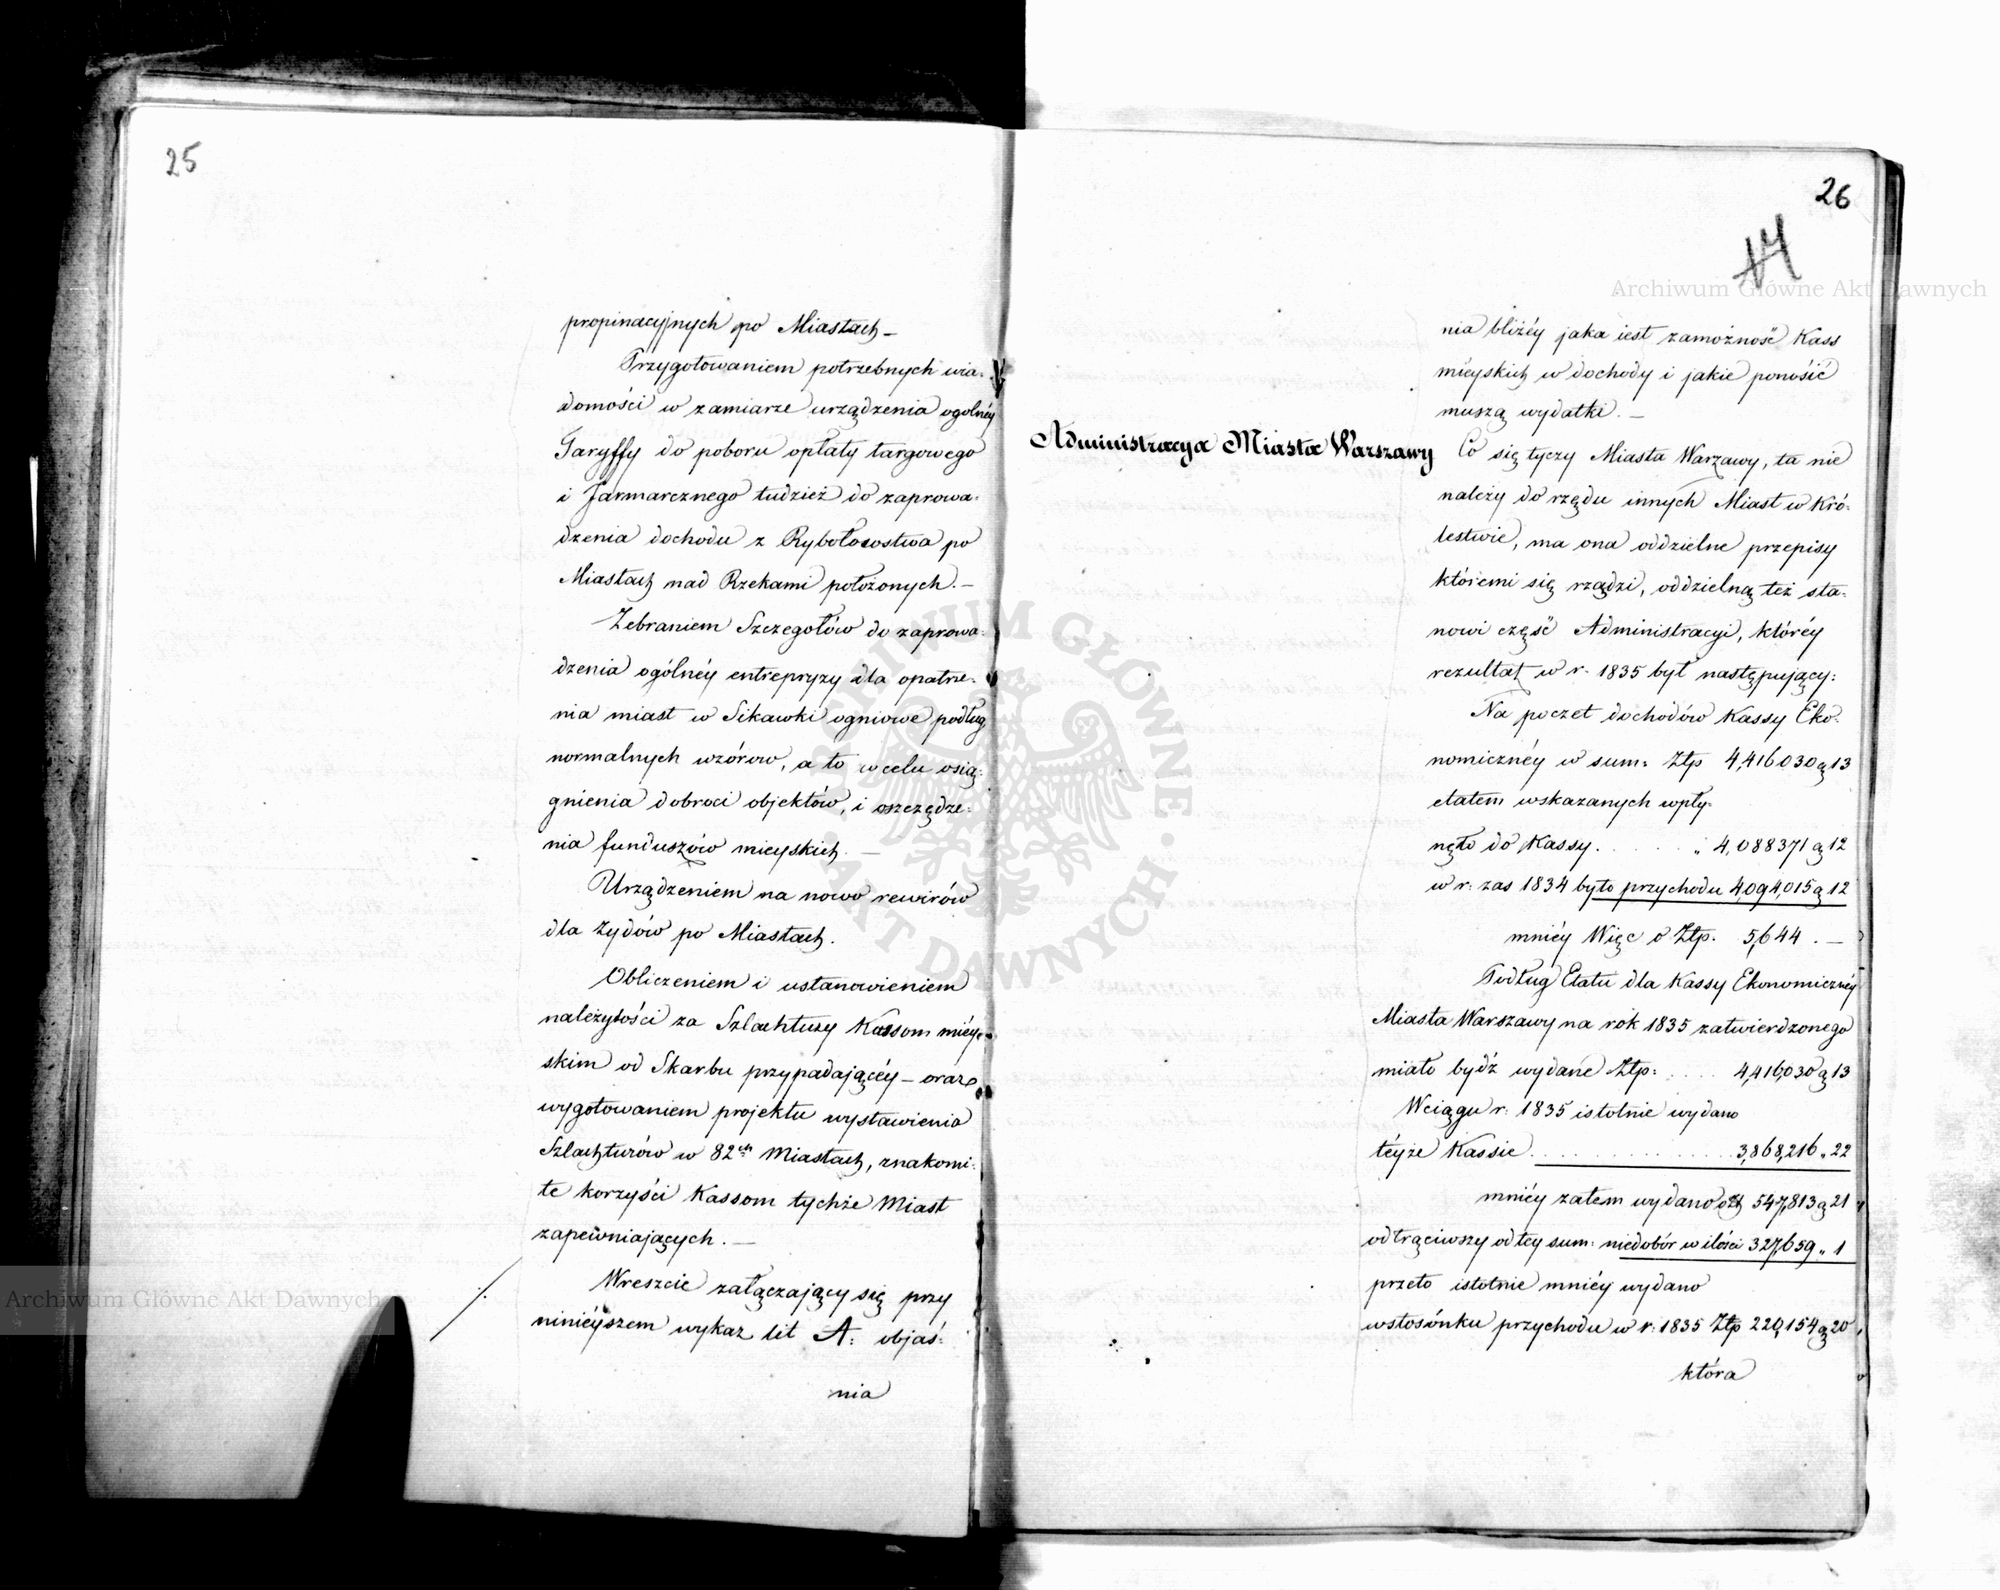 25
propinacyjnych po Miastach –
Przygotowaniem potrzebnych wia-
domości w zamiarze urządzenia ogolnéy
Taryffy do poboru opłaty targowego
i Jarmarcznego tudzież do zaprowa-
dzenia dochodu z Rybołowstwa po
Miastach nad Rzekami położonych. –
Zebraniem Szczegołów do zaprowa-
dzenia ogólnéy entrepryzy dla opatrze-
nia miast w Sikawki ogniowe podług
normalnych wzórow, a to w celu osią-
gnienia dobroci objektów, i oszczędze-
nia funduszów mieyskich. –
Urządzeniem na nowo rewirów
dla Żydów po Miastach.
Obliczeniem i ustanowieniem
należytości za Szlachtuzy Kassom miéy-
skim od Skarbu przypadającéy – oraz
wygotowaniem projektu wystawienia
Szlachtuzów w 82ch Miastach, znakomi-
te korzyści Kassom tychże Miast
zapewniających. –
Wreszcie załączający się przy
niniéyszem wykaz lit A: objaś-
nia
26
14
nia bliżéy jaka iest zamożność Kass
miéyskich w dochody i jakie ponosić
muszą wydatki. –
Administracya Miasta Warszawy
Co się tyczy Miasta Warzawy, ta nie
należy do rzędu innych Miast w Kró-
lestwie, ma ona oddzielne przepisy
któremi się rządzi, oddzielną też sta-
nowi część Administracyi, któréy
rezultat w r. 1835 był następujący:
Na poczet dochodów Kassy Eko-
nomicznéy w sum: Złp 4,416030 g 13
etatem wskazanych wpły-
nęło do Kassy. . . . . „ 4,088371 g 12
w r: zas 1834 było przychodu 4,094,015 g 12
mniéy Więc o Złp. 5,644 . –
Podług Etatu dla Kassy Ekonomicznéy
Miasta Warszawy na rok 1835 zatwierdzonego
miało bydź wydane Złp: . . . . 4,416,030 g 13
W ciągu r: 1835 istotnie wydano
téyże Kassie . . . . . . . . . . 3,868,216 „ 22
mniéy zatem wydano o Zł 547,813 g 21
odtrąciwszy od tey sum: niedobór w ilości 327,659 „ 1
przeto istotnie mniéy wydano
w stosónku przychodu w r: 1835 Złp 220,154 g 20
która
Archiwum Główne Akt Dawnych
Archiwum Główne Akt Dawnych
ARCHIWUM GŁÓWNE · AKT DAWNYCH ·